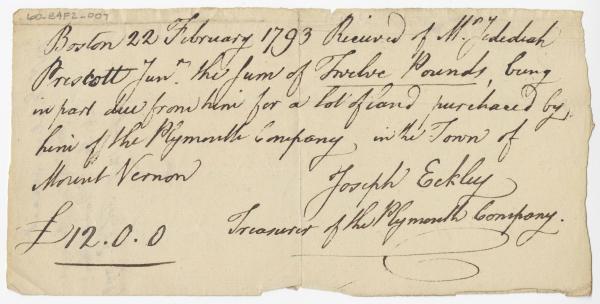 60-24F2-007
Boston 22 February 1793 Recieved of Mr. Jedediah
Prescott Junr. the Sum of Twelve Pounds, being
in part due from him for a lot of land purchased by
him of the Plymouth Company in the Town of
Mount Vernon
Joseph Eckley
£12.0.0 Treasurer of the Plymouth Company.